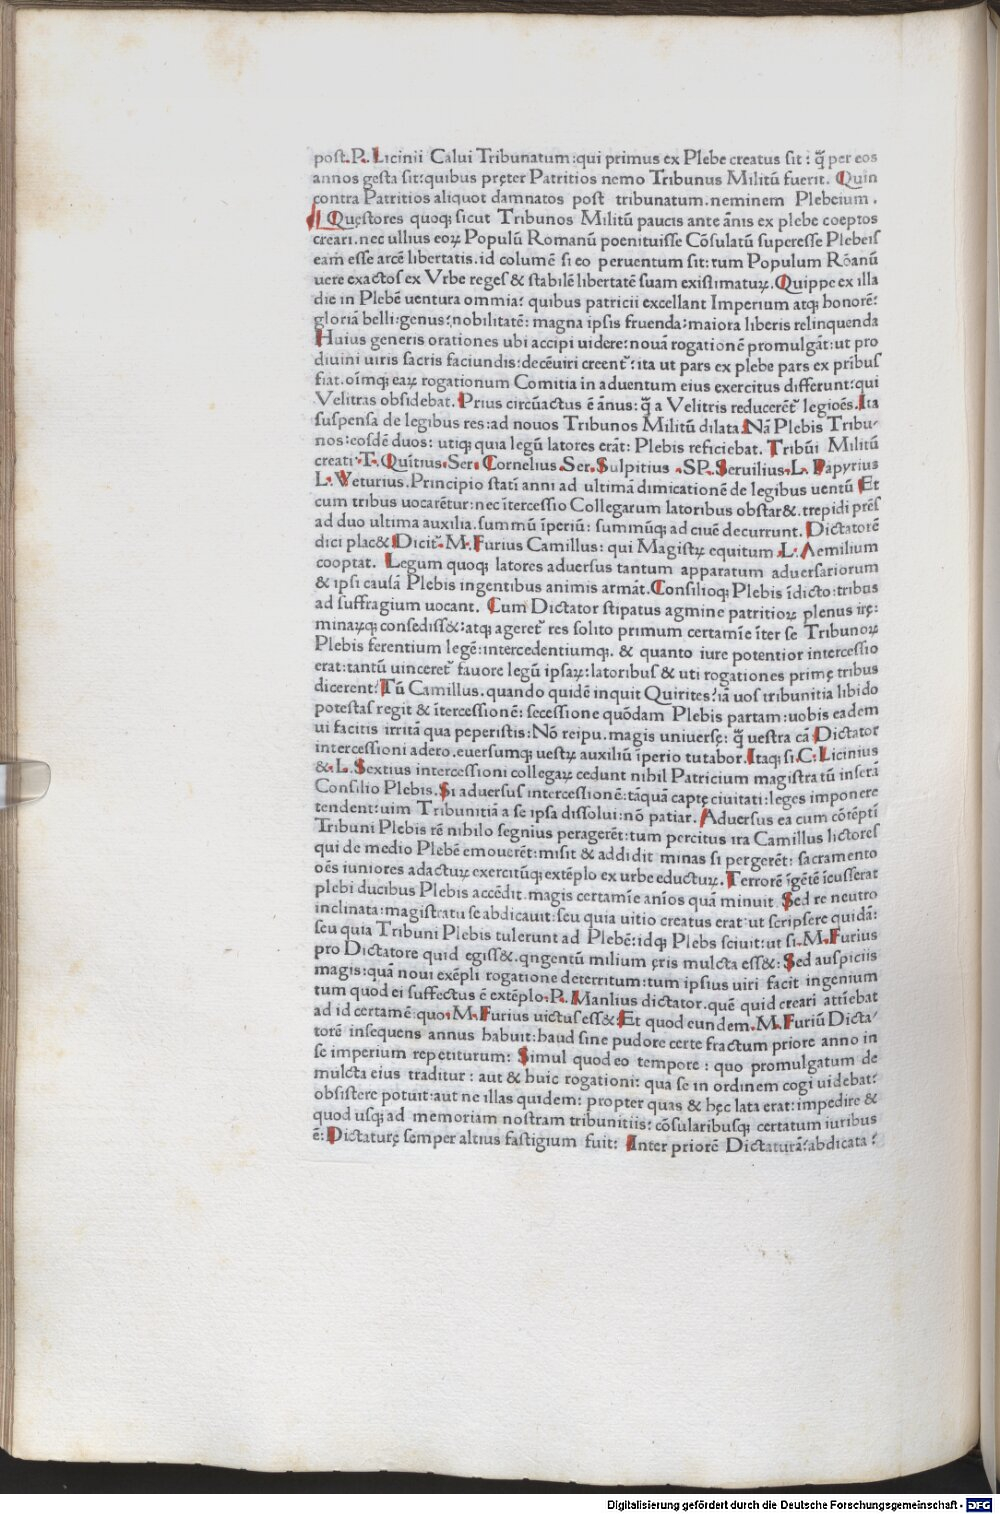 post.P. Licinii Calui Tribunatum:qui primus ex Plebe creatus sit: q̃ per eos
annos gesta sit:quibus pręter Patritios nemo Tribunus Militũ fuerit. Quin
contra Patritios aliquot damnatos post tribunatum.neminem Plebeium.
Quęstores quoq; sicut Tribunos Militũ paucis ante ãnis ex plebe coeptos
creari.nec ullius eoꝝ Populũ Romanũ poenituisse Cõsulatũ superesse Plebeis
eam esse arcẽ libertatis.id columẽ si eo peruentum sit:tum Populum Rõanũ
uere exactos ex Vrbe reges & stabilẽ libertatẽ suam existimatuꝝ. Quippe ex illa
die in Plebẽ uentura ommia: quibus patricii excellant Imperium atq; honorẽ:
gloriã belli:genus:nobilitatẽ: magna ipsis fruenda:maiora liberis relinquenda
Huius generis orationes ubi accipi uidere:nouã rogationẽ promulgãt:ut pro
diuini uiris sacris faciundis:decẽuiri creent᷒:ita ut pars ex plebe pars ex pribus
fiat.oĩmq; eaꝝ rogationum Comitia in aduentum eius exercitus differunt:qui
Velitras obsidebat. Prius circũactus ẽ ãnus: q̃ a Velitris reducerẽt᷒ legioẽs. Ita
suspensa de legibus res:ad nouos Tribunos Militũ dilata. Nã Plebis Tribu-
nos:eosdẽ duos: utiq; quia legũ latores erãt: Plebis reficiebat. Tribũi Militũ
creati.T. Quĩtius.Ser. Cornelius.Ser.Sulpitius.SP.Seruilius.L. Papyrius
L. Veturius.Principio statĩ anni ad ultimã dimicationẽ de legibus uentũ Et
cum tribus uocarẽtur:nec ĩtercessio Collegarum latoribus obstar&.trepidi prẽs
ad duo ultima auxilia.summũ ĩperiũ: summũq; ad ciuẽ decurrunt. Dictatorẽ
dici plac& Dicit᷒.M.Furius Camillus: qui Magistꝝ equitum.L. Aemilium
cooptat. Legum quoq; latores aduersus tantum apparatum aduersariorum
& ipsi causã Plebis ingentibus animis armãt. Consilioq; Plebis ĩdicto:tribus
ad suffragium uocant. Cum Dictator stipatus agmine patritioꝝ plenus irę:
minaꝝq; consediss&:atq; ageret᷒ res solito primum certamĩe ĩter se Tribunoꝝ
Plebis ferentium legẽ:intercedentiumq;. & quanto iure potentior intercessio
erat:tantũ uinceret᷒ fauore legũ ipsaꝝ:latoribus & uti rogationes primę tribus
dicerent: Tũ Camillus.quando quidẽ inquit Quirites:iã uos tribunitia libido
potestas regit & ĩtercessionẽ: secessione quõdam Plebis partam:uobis eadem
ui facitis irritã qua peperistis:Nõ reipu.magis universę: q̃ uestra cã Dictator
intercessioni adero.euersumq; uestꝝ auxiliũ ĩperio tutabor.Itaq; si.C.Licinius
&.L.Sextius intercessioni collegaꝝ cedunt nihil Patricium magistratũ inserã
Consilio Plebis.Si aduersus intercessionẽ:tãquã captę ciuitati:leges imponere
tendent:uim Tribunitiã a se ipsa dissolui:nõ patiar. Aduersus ea cum cõtẽpti
Tribuni Plebis rẽ nihilo segnius peragerẽt:tum percitus ira Camillus lictores
qui de medio Plebẽ emouerẽt:misit & addidit minas si pergerẽt: sacramento
oẽs iuniores adactuꝝ exercitũq; extẽplo ex urbe eductuꝝ. Terrorẽ ĩgẽtẽ ĩcusserat
plebi ducibus Plebis accẽdit magis certamĩe anĩos quã minuit Sed re neutro
inclinata:magistratu se abdicauit:seu quia uitio creatus erat ut scripsere quidã:
seu quia Tribuni Plebis tulerunt ad Plebẽ:idq; Plebs sciuit:ut si.M.Furius
pro Dictatore quid egiss&.qngentũ milium ęris mulcta ess&: Sed auspiciis
magis:quã noui exẽpli rogatione deterritum:tum ipsius uiri facit ingenium
tum quod ei suffectus ẽ extẽplo.P. Manlius dictator.quẽ quid creari attĩebat
ad id certamẽ:quo.M.Furius uictus ess&:Et quod eundem.M.Furiũ Dicta-
torẽ insequens annus habuit:haud sine pudore certe fractum priore anno in
se imperium repetiturum: Simul quod eo tempore: quo promulgatum de
mulcta eius traditur: aut & huic rogationi: qua se in ordinem cogi uidebat:
obsistere potuit:aut ne illas quidem: propter quas & hęc lata erat:impedire &
quod usq; ad memoriam nostram tribunitiis:cõsularibusq; certatum iuribus
ẽ:Dictaturę semper altius fastigium fuit: Inter priorẽ Dictaturã:abdicata:
Digitalisierung gefördert durch die Deutsche Forschungsgemeinschaft - DFG